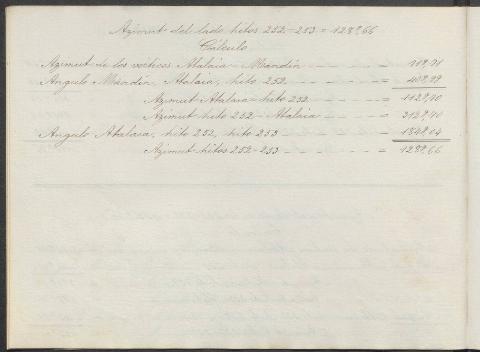 Azimut del lado hitos 252-253 = 128º,66
Cálculo
Azimut de los vertices Atalaia - Mandin =
Angulo Mandin, Atalaia, hito 252 =
Azimut Atalaia - hito 252 = 112º,40
Azimut hito 252 - Atalaia = 312º,40
Angulo Atalaia, hito 252, hito 253 =
Azimut hitos 252-253 = 128º,66